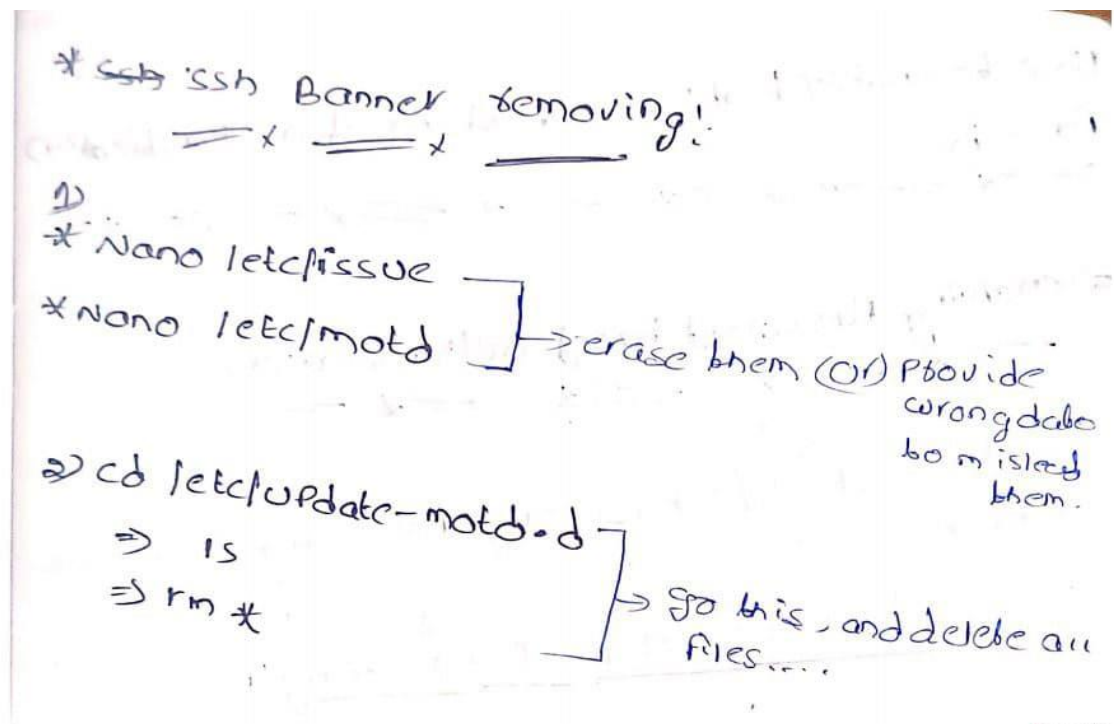 * ssh Banner removing!
1)
* Nano /etc/issue
* Nano /etc/motd
→ erase them (Or) Provide
wrong data
to mislead
them.
2) cd /etc/update-motd.d
⇒ ls
⇒ rm *
→ go this, and delete all
files.....